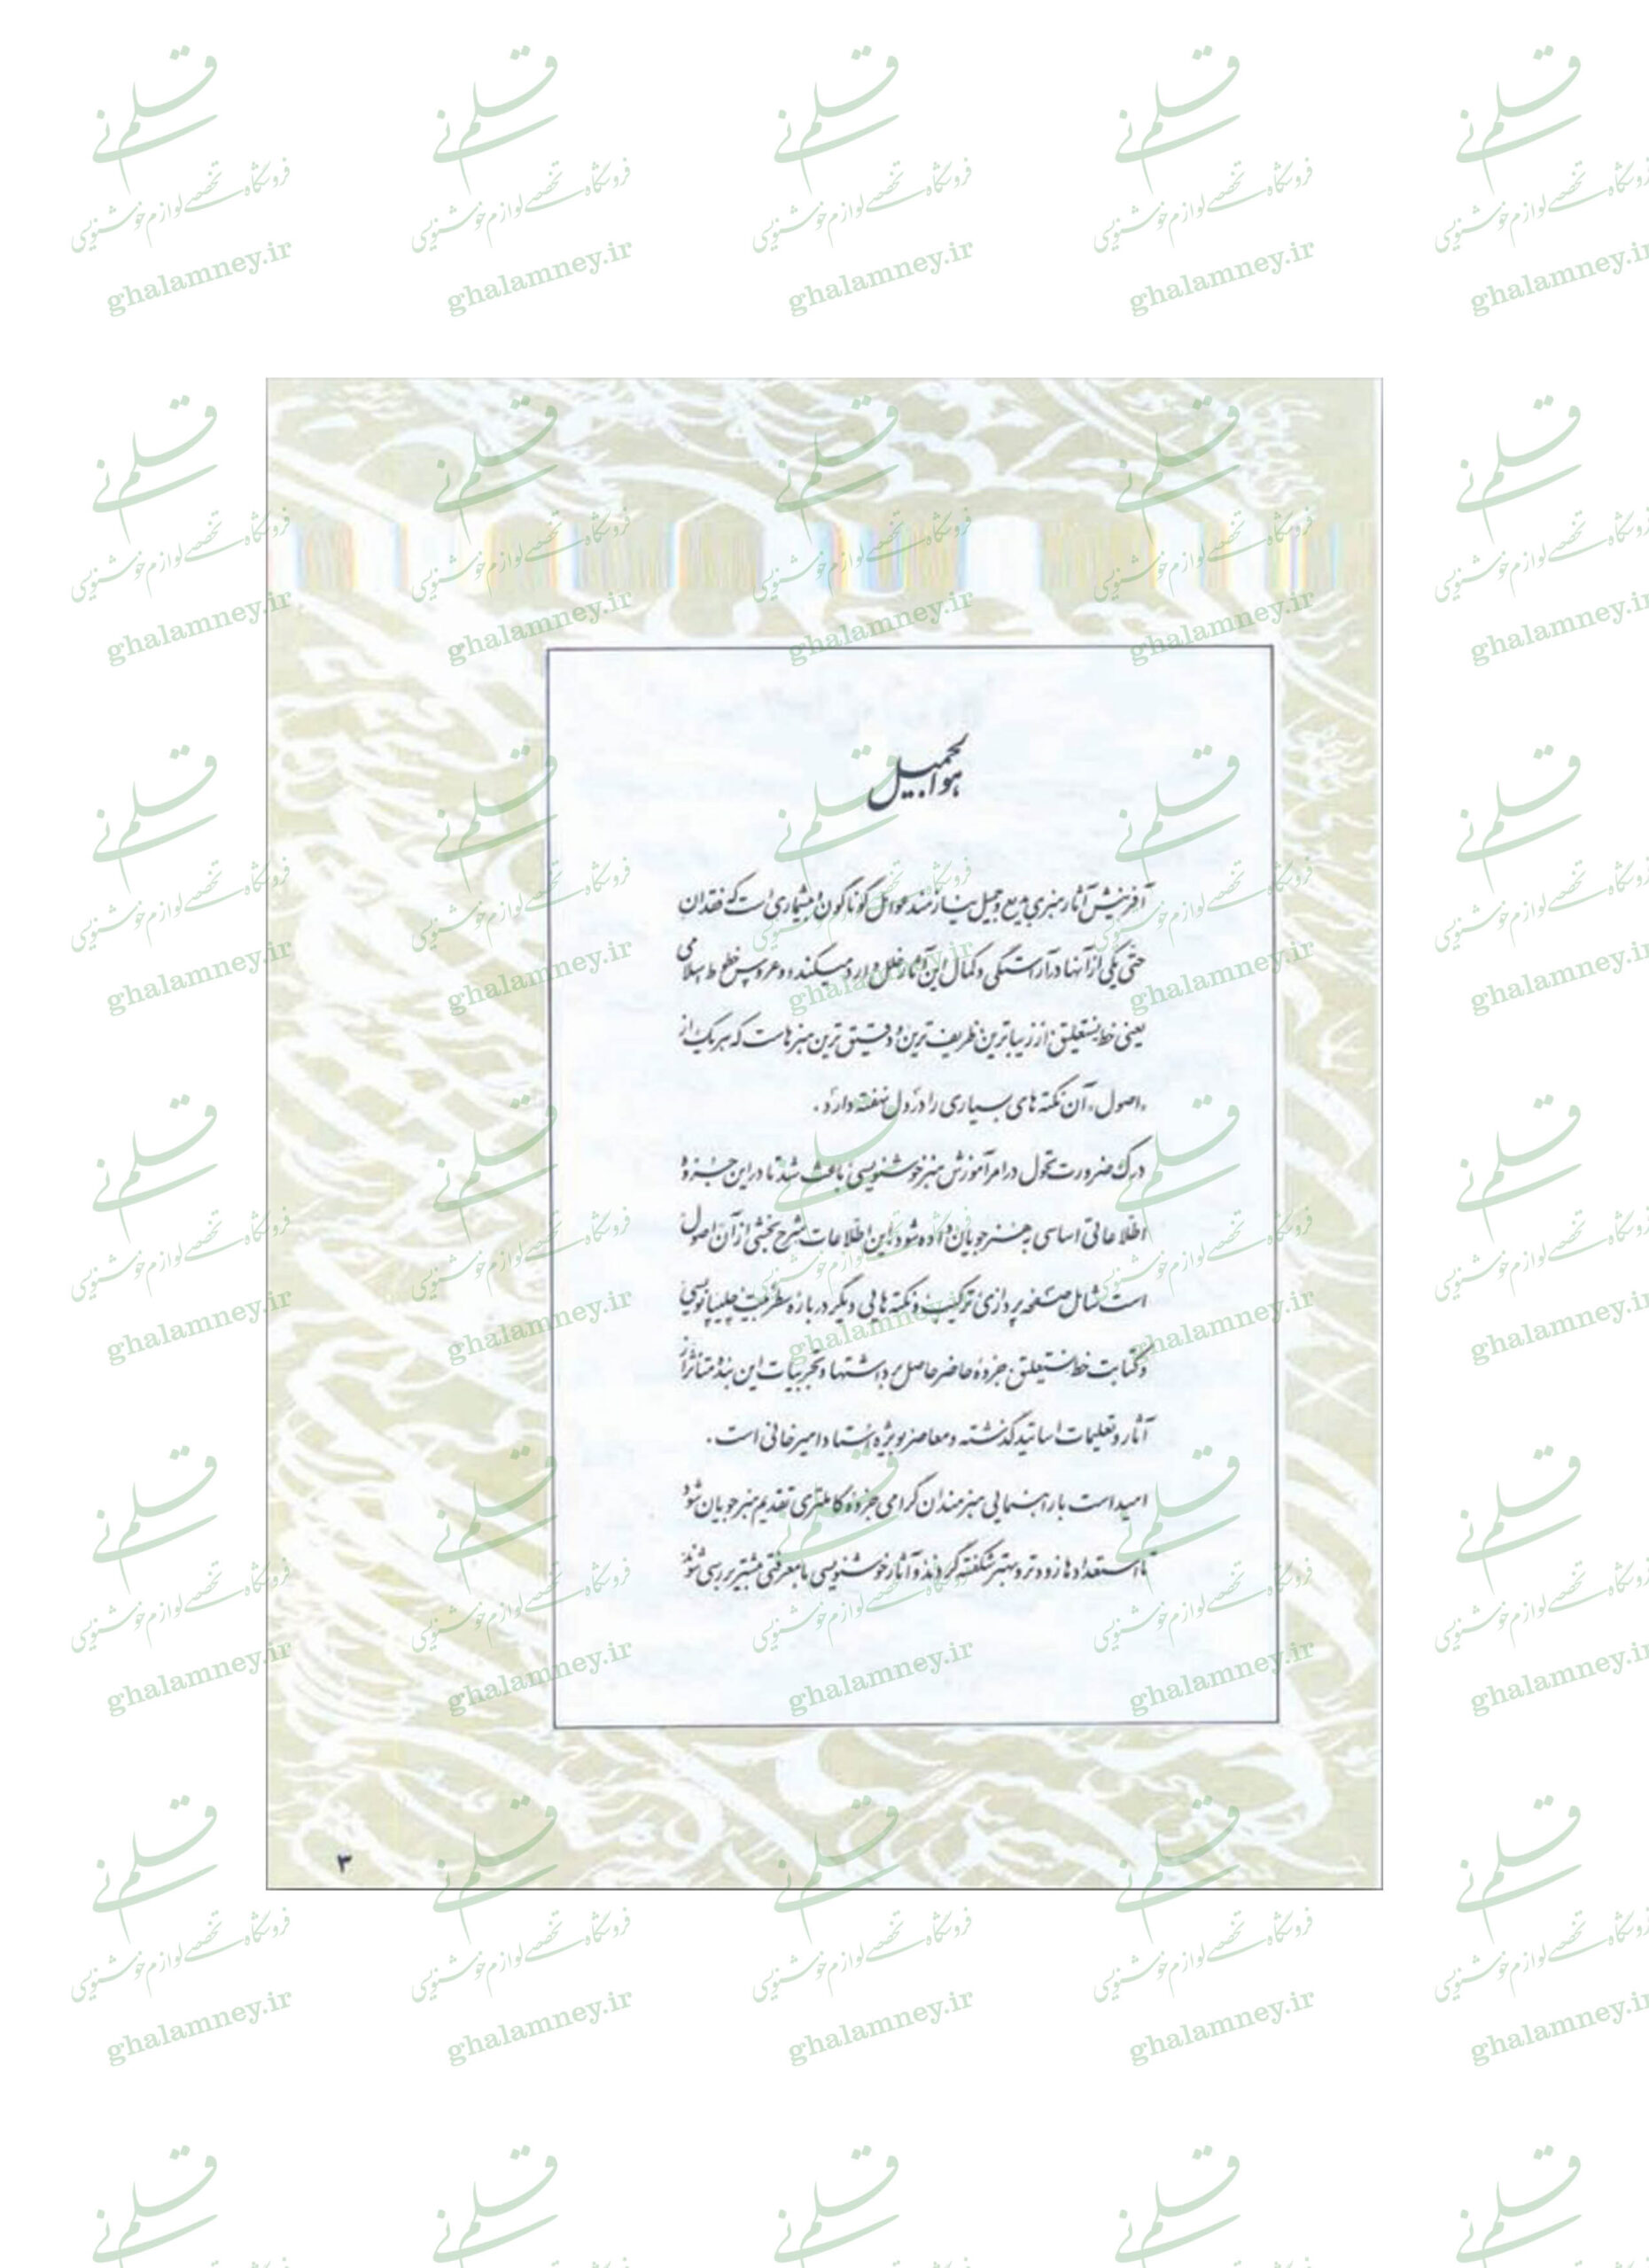 هوالجمیل
آفرینش آثار هنری بدیع و جمیل نیازمند عوامل گوناگون و بیشماری است که فقدان
حتی یکی از آنها در آراستگی و کمال این آثار خلل وارد میکند، و عروس خطوط اسلامی
یعنی خط نستعلیق، از زیباترین، ظریف‌ترین و دقیق‌ترین هنرهاست که هر یک از
«اصول» آن نکته‌های بسیاری را در دل نهفته دارد.
درک ضرورت تحول در امر آموزش هنر خوشنویسی باعث شد تا در این جزوه
اطلاعاتی اساسی به هنرجویان داده شود. این اطلاعات شرح بخشی از آن اصول
است شامل صفحه‌پردازی، ترکیب و نکته‌هایی دیگر درباره سطر، بیت، چلیپانویسی
و کتابت خط نستعلیق، جزوه حاضر حاصل برداشتها و تجربیات این بنده متاثر از
آثار و تعلیمات اساتید گذشته و معاصر بویژه استاد امیرخانی است.
امید است با راهنمایی هنرمندان گرامی جزوه کاملتری تقدیم هنرجویان شود
تا استعدادها زودتر و بهتر شکفته گردند و آثار خوشنویسی با معرفتی بیشتر بررسی شوند
۳
قلم نی
فروشگاه تخصصی لوازم خوشنویسی
ghalamney.ir